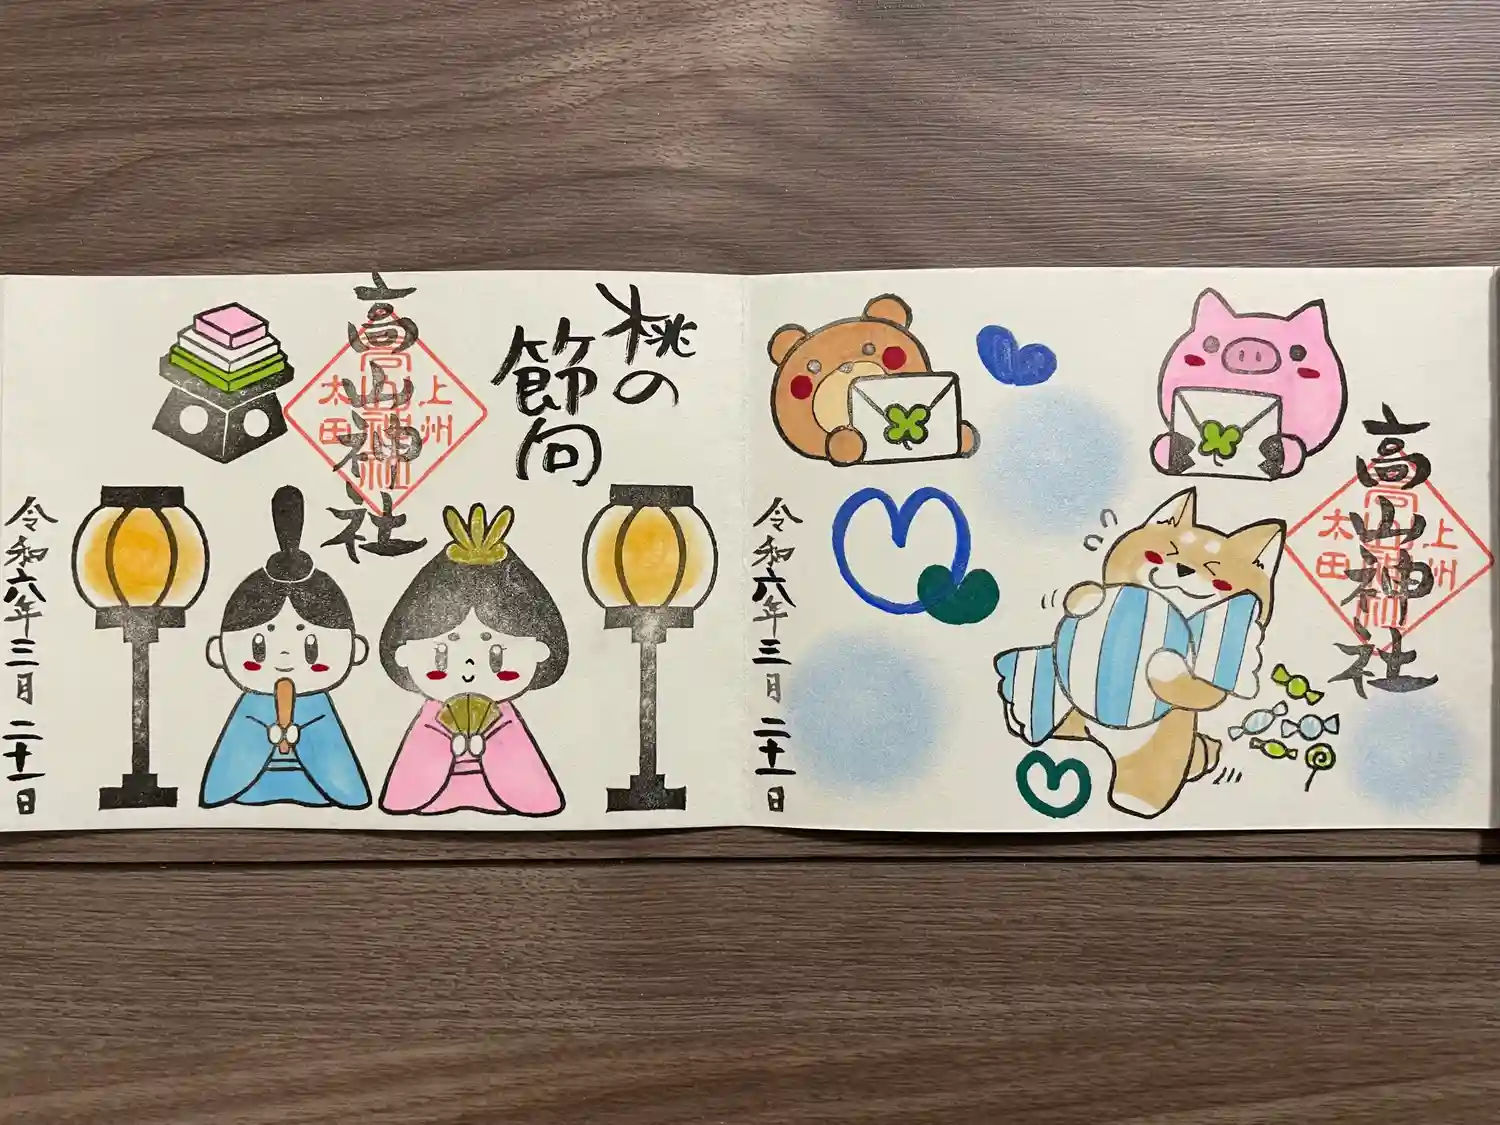 桃の
節句
高山神社
上州
太田
高山神社
令和六年三月二十一日
高山神社
上州
太田
高山神社
令和六年三月二十一日